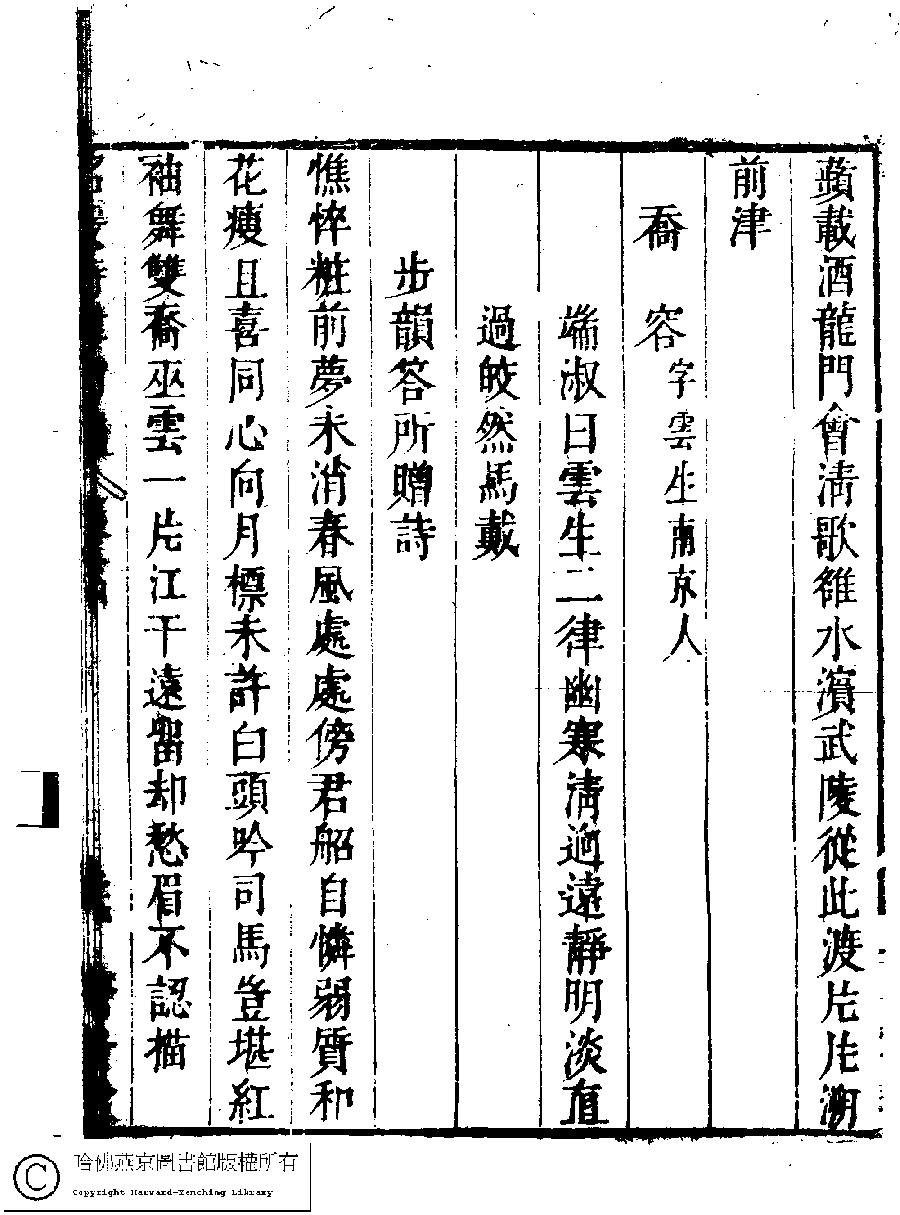 蘋載酒龍門會清歌雒水濵武陵從此渡片片溯
前津
喬　容字雲生南京人
端淑曰雲生二律幽寒淸逈遠靜明淡直
過皎然馬戴
步韻答所贈詩
憔悴粧前夢未消春風處處傍君船自憐弱質和
花瘦且喜同心向月標未許白頭吟司馬豈堪紅
袖舞雙喬巫雲一片江干遠留却愁眉不認描
哈佛燕京圖書館版權所有
Copyright Harvard-Yenching Library